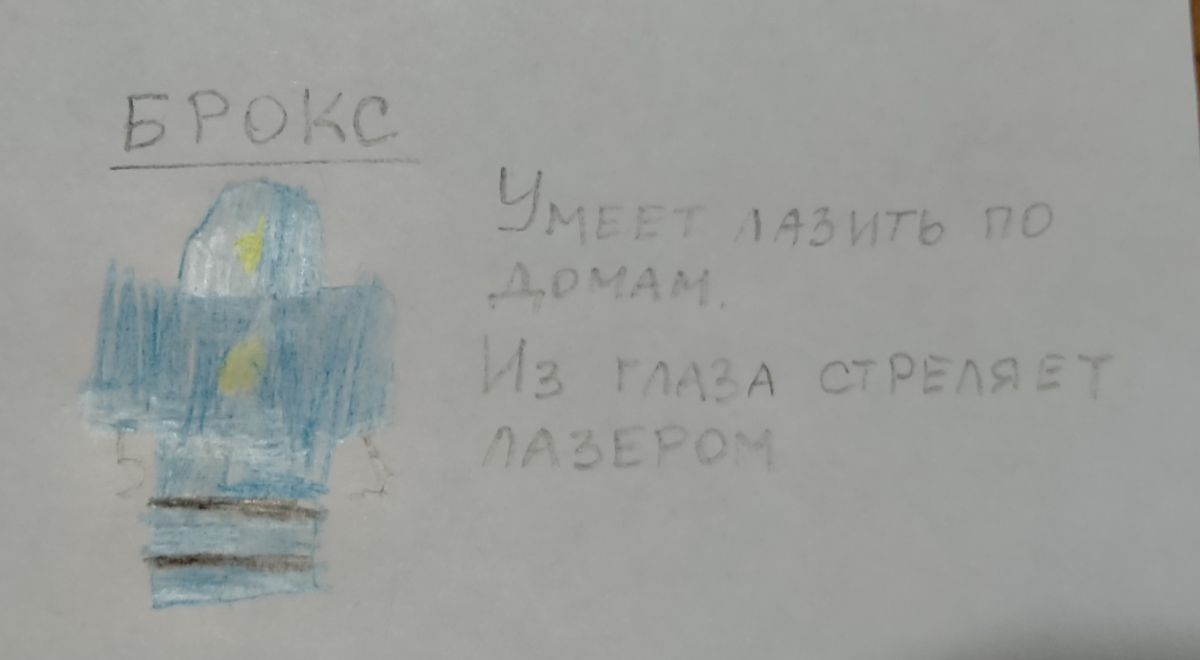 БРОКС
УМЕЕТ ЛАЗИТЬ ПО
ДОМАМ.
ИЗ ГЛАЗА СТРЕЛЯЕТ
ЛАЗЕРОМ